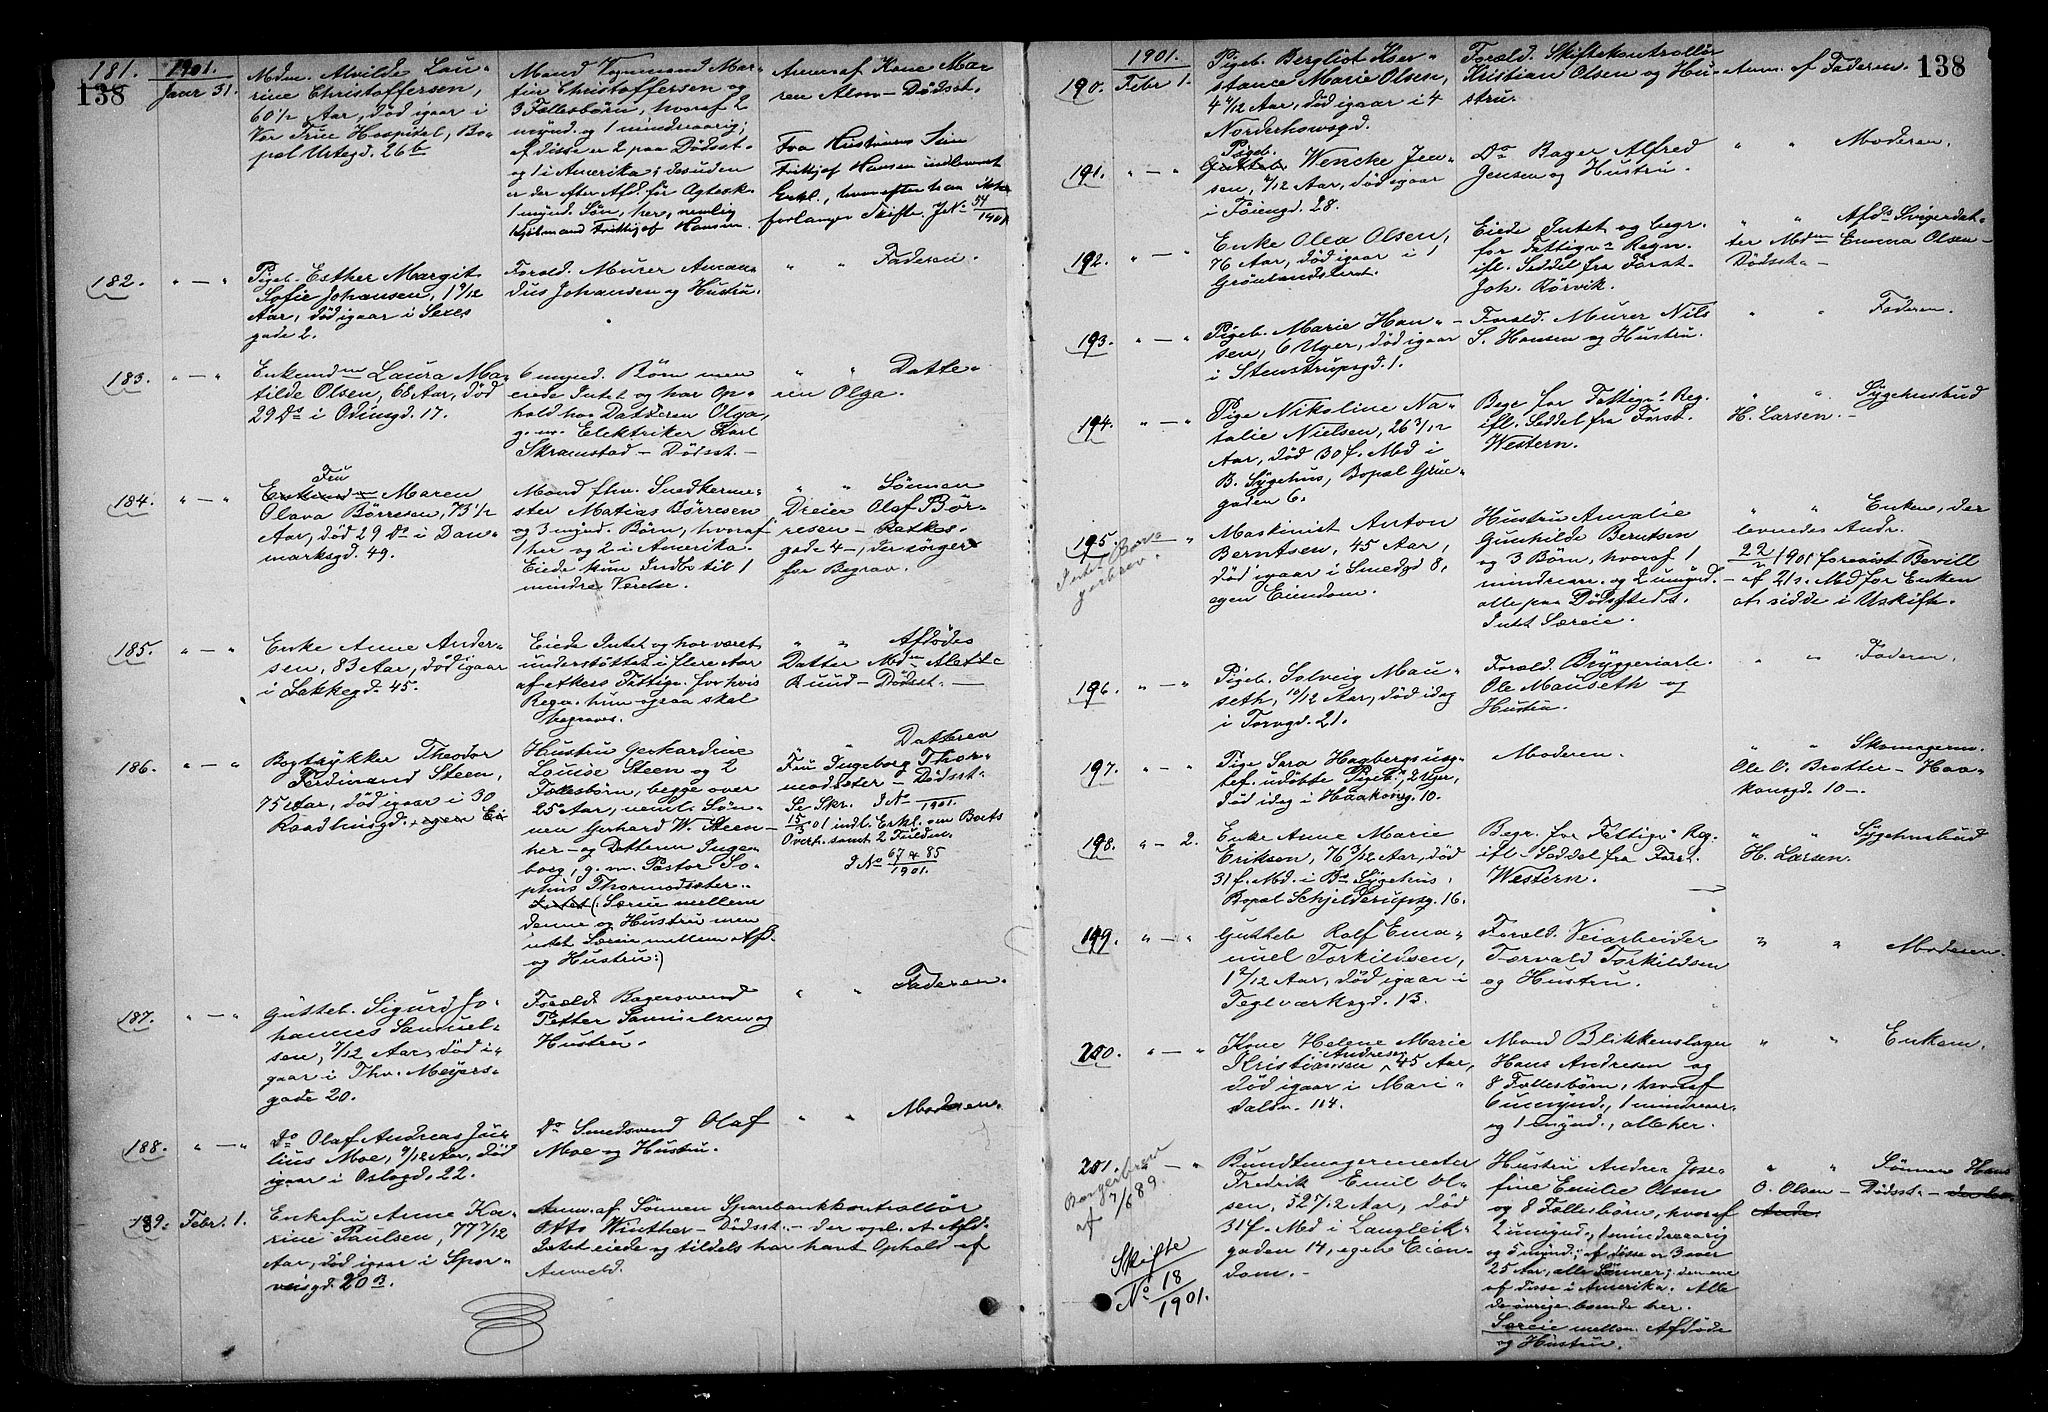 138
181.
1901.
Janr 31.
Mdm. Alvilde Lau-
rine Christoffersen,
60 1/2 Aar, død igaar i
Vor Frue Hospital, Bo-
pæl Urtegd. 26b
Mand Vognmand Mar-
tin Christoffersen og
3 Fællesbørn, hvoraf 2
umynd. og 1 mindreaarig;
af disse er 2 paa Dødsst.
og 1 i Amerika; desuden
er der efter Afd. før Ægtesk.
1 mynd. Søn, her, nemlig
Frithjof Hansen.
Anm. af Kone Ma-
ren Alm - Dødsst.
Fra Hustruens Søn
Frithjof Hansen indleveret
Erkl., hvorefter han ikke
forlanger Skifte. J No 54/1901
182.
" — "
Pigeb. Esther Margit
Sofie Johansen, 1 9/12
Aar, død igaar i Sexes
gade 2.
Foræld. Murer Aman-
dus Johansen og Hustru.
" " Faderen.
183.
" — "
Enkemdm Laura Ma-
tilde Olsen, 68 Aar, død
29 Ds i Odinsgd. 17.
6 mynd. Børn men
eiede Intet og har Op-
hold hos Datteren Olga,
g. m. Elektriker Karl
Skramstad — Dødsst. —
" " Datte-
ren Olga.
184.
" — "
Fru
Enkemd m Maren
Olava Børresen, 73 1/2
Aar, død 29 Ds i Dan-
marksgd. 49.
Mand fhv. Snedkerme-
ster Matias Børresen
og 3 mynd. Børn, hvoraf
1 her og 2 i Amerika.
Eiede kun Indbo til
mindre Værdi.
" " Sønnen
Dreier Olaf Bør-
resen — Ratkes-
gade 4 —, der sørger
for Begrav.
185.
" — "
Enke Anne Ander-
sen, 83 Aar, død igaar
i Lakkegd. 45.
Eiede Intet og har været
understøttet i flere Aar
af Akers Fattigv. for hvis
Regn. hun ogsaa skal
begraves.
" " Afdødes
Datter Mdm
Ruud — Dødsst. —
186.
" — "
Bogtrykker Theodor
Ferdinand Steen,
75 Aar, død igaar i 30
Raadhusgd. egen Ei
Hustru Gerhardine
Louise Steen og 2
Fællesbørn, begge over
25 Aar, neml. Søn-
nen Gerhard W. Steen —
her — og Datteren Inge-
borg, g. m. Pastor So-
phus Thormodsæter.
Intet (: Særeie mellem
denne og Hustru men
intet Særeie mellem Afd.
og Hustru :)
" " Datteren
Fru Ingeborg Thor-
modsæter — Dødsst. —
Se Skr. J No /1901.
15/3 01 indl. Erkl. om Boets
Overt. samt 2 Fuldm.
J No 67 & 85/1901.
187.
" — "
Gutteb. Sigurd Jo-
hannes Samuel-
sen, 7/12 Aar, død i-
gaar i Thv. Meyers-
gade 20.
Foræld. Bagersvend
Petter Samuelsen og
Hustru.
" " Faderen.
188.
" — "
Do Olaf Andreas Ju-
lius Moe, 9/12 Aar, død
igaar i Oslogd. 22.
Do Smedsvend Olaf
Moe og Hustru.
" " Moderen.
189.
Febr. 1.
Enkefru Anne Ka-
rine Paulsen, 77 7/12
Aar, død igaar i Spor-
veisgd. 20 B.
Anm. af Sønnen Sparebankkontrollør
Otto Winther — Dødsst. — der opl. at Afd.
Intet eiede og tildels har havt Ophold af
Anmeld.
138
1901.
190.
Febr 1.
Pigeb. Bergliot Kon-
stance Marie Olsen,
4 4/12 Aar, død igaar i 4
Norderhowsgd.
Foræld. Skiftekontrollør
Kristian Olsen og Hu-
stru.
Anm. af Faderen.
191.
" — "
Pigeb.
Gutteb. Wencke Jen-
sen, 4/12 Aar, død igaar
i Tøiengd. 28.
Do Bager Alfred
Jensen og Hustru.
" " Moderen.
192.
" — "
Enke Olea Olsen,
76 Aar, død igaar i 1
Grønlandsleret.
Eiede Intet og begr.
for Fattigvs Regn.
ifl. Seddel fra Forst.
Joh. Rørvik.
" " Afds Svigerdat-
ter Mdm Emma Olsen —
Dødsst. —
193.
" — "
Pigeb. Marie Han-
sen, 6 Uger, død igaar
i Stenstrupsgd. 1.
Foræld. Murer Nils
S. Hansen og Hustru.
" " Faderen.
194.
" — "
Pige Nikoline Na-
talie Nielsen, 26 3/12
Aar, død 30 f. Md i
B. Sygehus, Bopæl Grue-
gaden 6.
Begr. for Fattigvs Reg.
ifl. Seddel fra Forst.
Western.
" " Sygehusbud
H. Larsen. —
195.
" — "
Intet Bor-
gerbrev.
Maskinist Anton
Berntsen, 45 Aar,
død igaar i Smedgd 8,
egen Eiendom.
Hustru Amalie
Gunhilde Berntsen
og 3 Børn, hvoraf 1
mindreaar. og 2 umynd.
alle paa Dødsstedet.
Intet Særeie.
" " Enken, der
levnedes Andr.
22/2 1901 forevist Bevill.
af 21 s. Md for Enken
at sidde i Uskifte.
196.
" — "
Pigeb. Solveig Mau-
seth, 10/12 Aar, død idag
i Torvgd. 21.
Foræld. Bryggeriarb.
Ole Mauseth og
Hustru.
" " Faderen.
197.
" — "
Pige Sara Hagbergs ug-
tef. udøbte Pigeb., 2 Uger,
død idag i Haakonsg. 10.
Moderen.
" " Skomagerm.
Ole O. Brotter — Haa-
konsgd. 10 —.
198.
" — 2.
Enke Anne Marie
Eriksen, 76 3/12 Aar, død
31 f. Md. i Bs Sygehus,
Bopæl Schjelderupsg. 16.
Begr. for Fattigvs Reg.
ifl. Seddel fra Forst.
Western.
" " Sygehusbud
H. Larsen.
199.
" — "
Gutteb. Rolf Ema-
nuel Torkildsen,
1 2/12 Aar, død igaar i
Teglværksgd. 13.
Foræld. Veiarbeider
Torvald Torkildsen
og Hustru.
" " Moderen.
200.
" — "
Kone Helene Marie
Kristiansen Andresen, 45 Aar,
død igaar i Mari-
dalsv. 114.
Mand Blikkenslager
Hans Andresen og
8 Fællesbørn, hvoraf
6 umynd., 1 mindreaar.
og 1 mynd., alle her.
" " Enkem.
201.
" — "
Borgerbrev
af 7/6 89.
Skifte
No 18/1901.
Bundtmagermester
Fredrik Emil Ol-
sen, 52 7/12 Aar, død
31 f. Md i Langleik-
gaden 14, egen Eien-
dom. —
Hustru Andrea Jose-
fine Emilie Olsen
og 8 Fællesbørn, hvoraf
2 umynd., 1 mindreaarig
og 5 mynd.; af disse er 3 over
25 Aar, alle Sønner; den ene
af disse i Amerika. Alle
de øvrige boende her.
Særeie mellem Afdøde
og Hustru.
" " Sønnen Hans
O. Olsen — Dødsst. —
Andr.